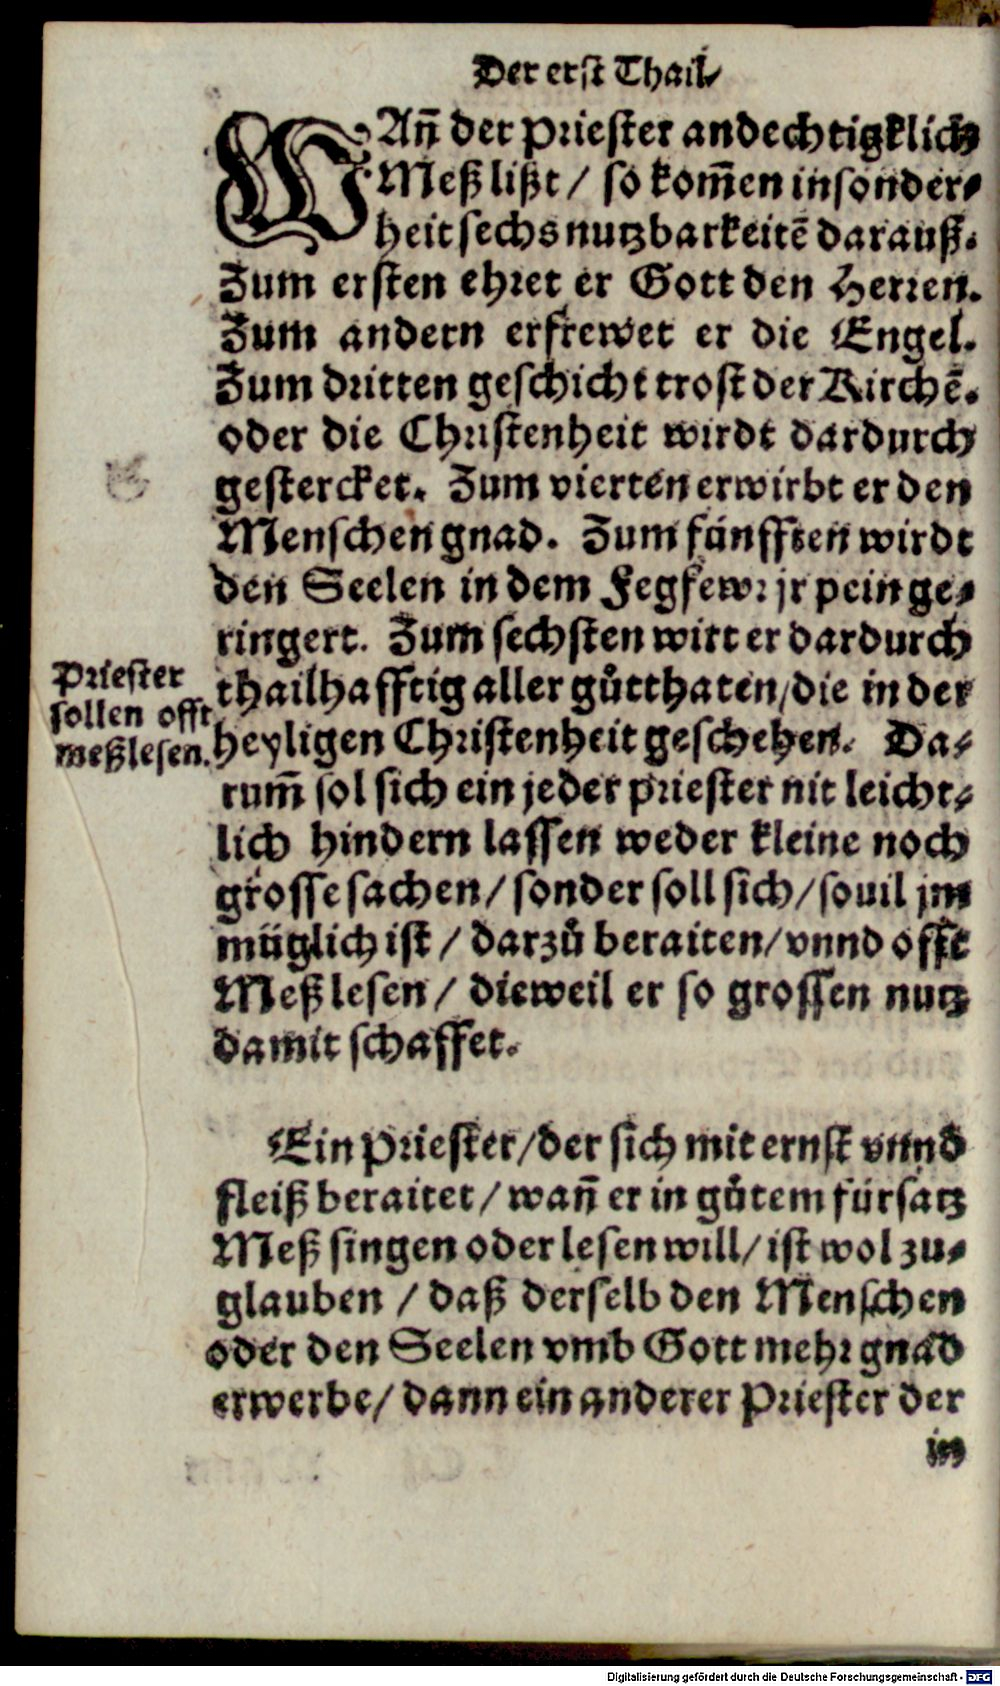 Der erst Thail/
WAñ der Priester andechtigklich
Meß lißt / so kom̃en insonder-
heit sechs nutzbarkeitē darauß.
Zum ersten ehret er Gott den Herren.
Zum andern erfrewet er die Engel.
Zum dritten geschicht trost der Kirchē.
oder die Christenheit wirdt dardurch
gestercket. Zum vierten erwirbt er den
Menschen gnad. Zum fünfften wirdt
den Seelen in dem Fegfewr jr pein ge-
ringert. Zum sechsten wirt er dardurch
thailhafftig aller gůtthaten/die in der
heyligen Christenheit geschehen. Da-
rum̃ sol sich ein jeder priester nit leicht-
lich hindern lassen weder kleine noch
grosse sachen/ sonder soll sich/souil jm
müglich ist / darzů beraiten/vnnd offt
Meß lesen / dieweil er so grossen nutz
damit schaffet.
Priester
sollen offt
Meßlesen.
Ein Priester/der sich mit ernst vnnd
fleiß beraitet / wañ er in gůtem fürsatz
Meß singen oder lesen will/ ist wol zu-
glauben / daß derselb den Menschen
oder den Seelen vmb Gott mehr gnad
erwerbe/ dann ein anderer Priester der
in
Digitalisierung gefördert durch die Deutsche Forschungsgemeinschaft - DFG